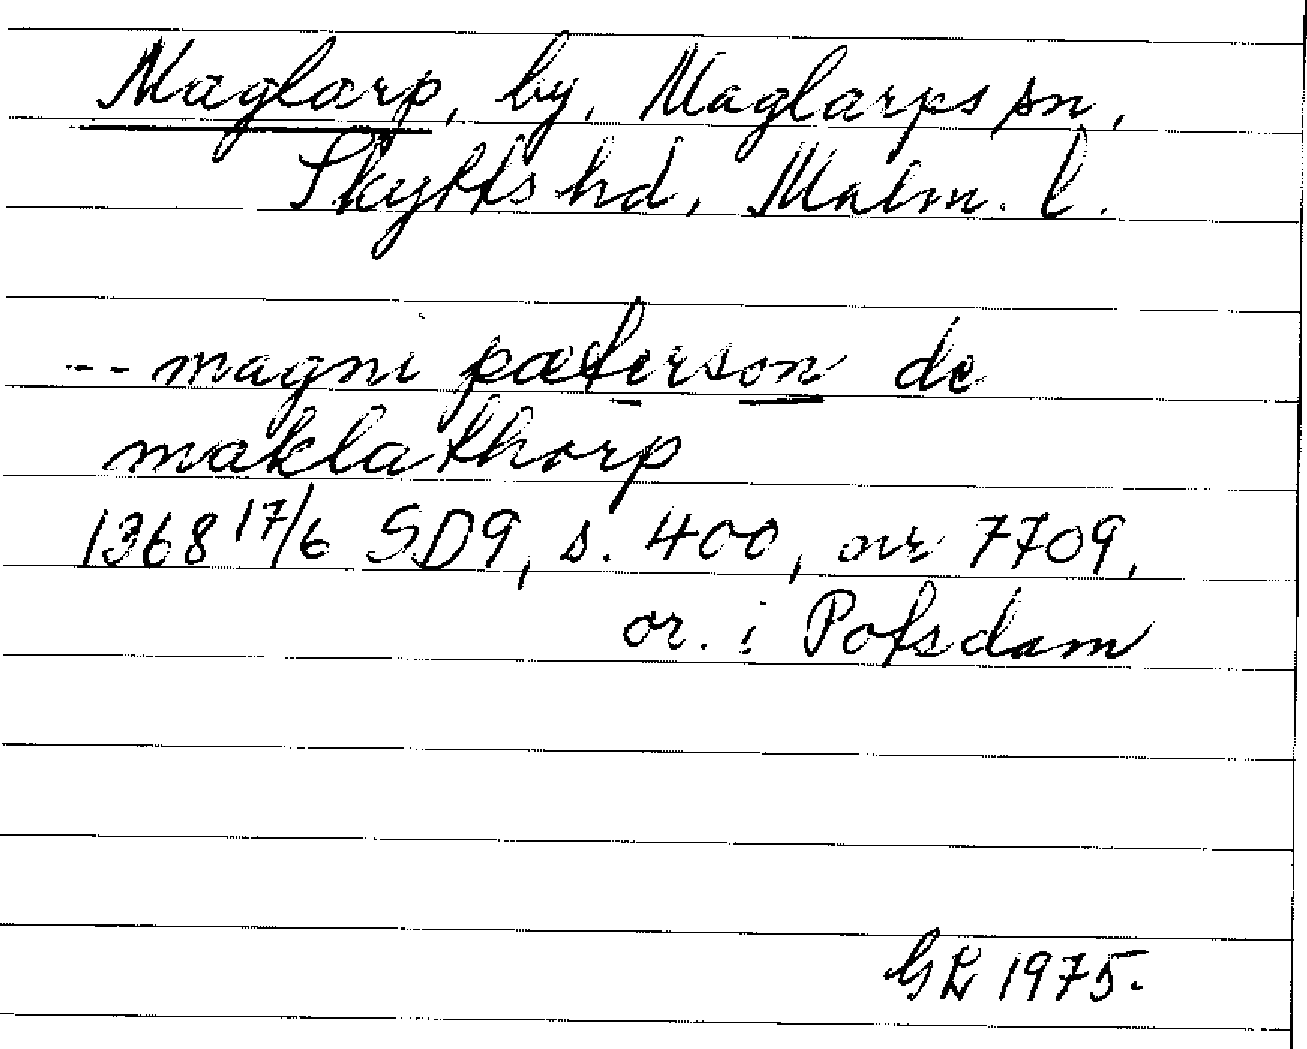 Maglarp, by, Maglarps sn,
Skytts hd, Malm. l.
-- magni pæterson de
maklathorp
1368 17/6 SD9, s. 400, nr 7709,
or. i Potsdam
1975.